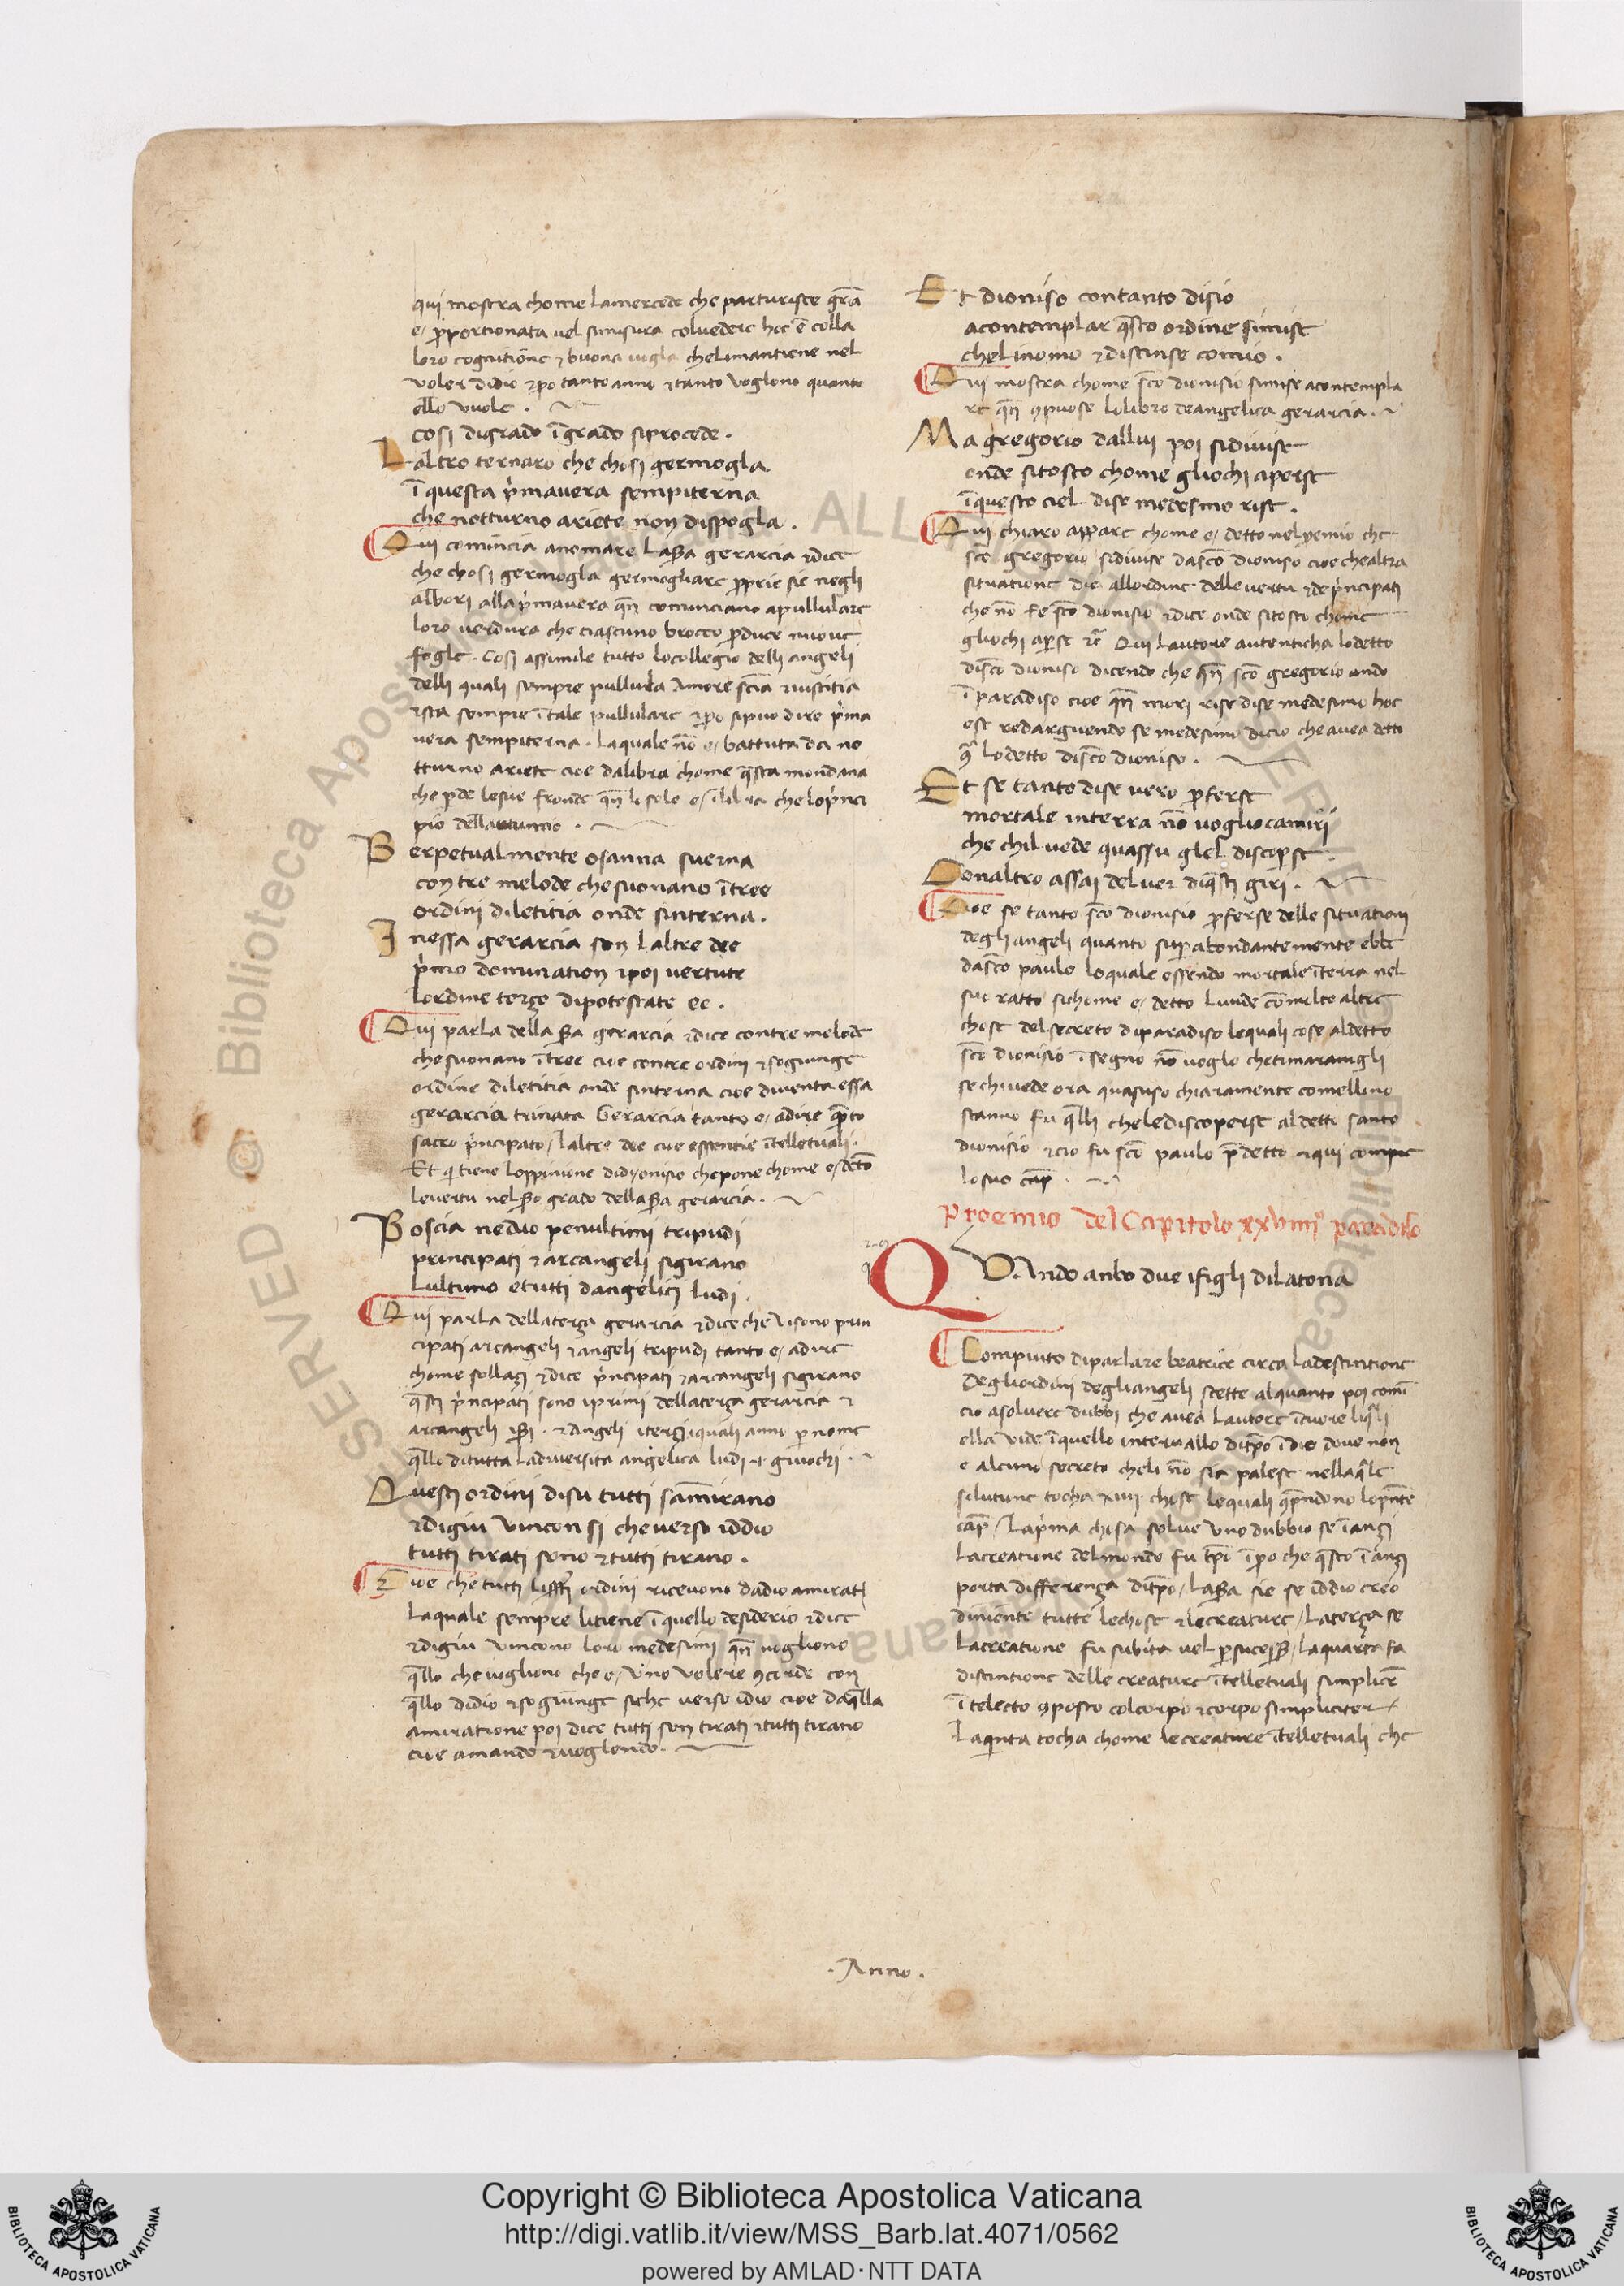 qui mostra chome lamercede che parturisce gr̄a
e / ꝓportionata vel simisura coluedere hoc ē colla
loro cognitiōne ⁊ buona vogla chelimantiene nel
voler didio ⁊ꝑo tanto anno ⁊tanto voglono quanto
ello vuole .
cosi digrado īgrado siprocede .
Laltro ternaro che chosi germogla
ī questa p̄mavera sempiterna
che notturno ariete non dispogla .
Qui comincia anomare la gerarcia ⁊dice
che chosi germogla germoglare ꝓprie sie negli
albori alla p̄mavera qn̄ cominciano apullulare
loro verdura che ciascuno brocco ꝓduce nuove
fogle . Cosi assimile tutto locollegio delli angeli
delli quali sempre pullula Amore sc̄ia ⁊iustitia
⁊sta sempre ī tale pullulare ⁊ꝑo sipuo dire p̄ma
vera sempiterna . laquale nō e / battuta da no
tturno ariete cioe dalibra chome q̄sta mondana
che ꝑde lesue fronde qn̄ lo sole e / ilibra che lop̄nci
pio dellautunno .
Perpetualmente osanna suerna
con tre melode chesuonano ī tree
ordini diletitia onde sinterna .
Inessa gerarcia son laltre dee
p̄mo domination ⁊poi vertute
lordine terço dipotestate ee .
Qui parla della gerarcia ⁊dice contre melode
chesuonano ī tree cioe contre ordini ⁊sogiunge
ordine diletitia onde sinterna cioe diventa essa
gerarcia trinata Gerarcia tanto e / adire q̄nto
sacro p̄ncipato / laltre dee cioe essentie ītelletuali .
Et q̄ tiene loppinione didyonisio chepone chome e / detto
levertu nel grado della gerarcia .
Poscia neduo penultimi tripudi
principati ⁊arcangeli sigirano
lultimo etutti dangelici ludi .
Qui parla dellaterça gerarcia ⁊dice che visono prin
cipati arcangeli ⁊angeli tripudi tanto e / adire
chome sollaçi ⁊dice p̄ncipati ⁊arcangeli sigirano
q̄sti p̄ncipati sono iprimi dellaterça gerarcia ⁊
arcangeli . ⁊Angeli iterçi iquali anno ꝑ nome
q̄llo ditutta ladiversita angelica ludi ⁊ giuochi .
Questi ordini disu tutti samirano
⁊digiu vincon si che verso iddio
tutti tirati sono ⁊tutti tirano .
Cioe che tutti ordini ricevono dadio amirati
laquale sempre litiene ī quello desiderio ⁊dice
⁊digiu vincono loro medesimi qn̄ vogliono
q̄llo che vogliono che e / Vno volere ꝯcorde con
q̄llo didio ⁊sogiunge siche verso idio cioe daq̄lla
amiratione poi dice tutti son tirati ⁊tutti tirano
cioe amando ⁊voglendo .
Et dioniso contanto disio
acontemplar q̄sto ordine simise
chelinomo ⁊distinse comio .
Qui mostra chome sc̄o dionisio simise acontempla
re qn̄ ꝯpuose lolibro deangelica gerarcia .
Ma gregorio dallui poi sidivise
onde sitosto chome gliochi aperse
ī questo ciel dise medesmo rise .
Qui chiaro appare chome e / detto nelꝓemio che
sc̄o gregorio sidivise dasc̄o dioniso cioe chealtra
situatione die allordine delle vertu ⁊de p̄ncipati
che nō fe sc̄o dionisio ⁊dice onde sitosto chome
gliochi aꝑse ⁊c̄ Qui lautore autenticha lodetto
disc̄o dioniso dicendo che qn̄ sc̄o gregorio ando
ī paradiso cioe qn̄ mori rise dise medesimo hoc
est redarguendo se medesimo dicio che avea detto
ꝯ̄ lodetto disc̄o dioniso .
Et se tanto dise vero ꝓferse
mortale interra nō voglio camiri
che chil vede quassu glel discoꝑse .
Conaltro assai del ver diq̄sti giri .
Cioe se tanto sc̄o dionisio ꝓferse delle situationi
degli angeli quanto suꝑabondantemente ebbe
dasc̄o paulo loquale essendo mortale ī terra nel
suo ratto sichome e / detto luvide cōmolte altre
chose del secreto diparadiso lequali cose aldetto
sc̄o dionisio ī segno nō voglo chetimaravigli
se chivede ora quasuso chiaramente comellino
stanno fu q̄lli chelediscoperse al detto santo
dionisio ⁊cio fu sc̄o paulo p̄detto ⁊qui compie
losuo cap̄ .
Proemio del Capitolo xxviiijº paradiso
QVAndo anbo due ifigli dilatona
Compiuto diparlare beatrice circa ladestintione
degliordini degliangeli stette alquanto poi comī
cio asolvere dubbi che avea lautore īcuore liq̄li
ella vide ī quello intervallo ditꝑo ī dio dove non
e alcuno secreto cheli nō sia palese nellaq̄le
silutione tocha xiiij chose lequali ꝯp̄ndono lop̄nte
cap̄ / Lap̄ma chosa solve vno dubbio se īançi
lacreatione delmondo fu tꝑo īꝑo che q̄sto īançi
porta differença ditꝑo / la sie se iddio creo
diniente tutte lechose ⁊lecreature / laterça se
lacreatione fu subita vel ꝑ / laquarta fa
distintione delle creature ītelletuali simplicē
ī telecto ꝯposto colcorpo ⁊corpo simpliciter /
Laqu̇inta tocha chome lecreature ītelletuali che
. Anno .
© Biblioteca Apostolica Vaticana ALL RIGHTS RESERVED
Copyright © Biblioteca Apostolica Vaticana
http://digi.vatlib.it/view/MSS_Barb.lat.4071/0562
powered by AMLAD·NTT DATA
BIBLIOTECA APOSTOLICA VATICANA
BIBLIOTECA APOSTOLICA VATICANA